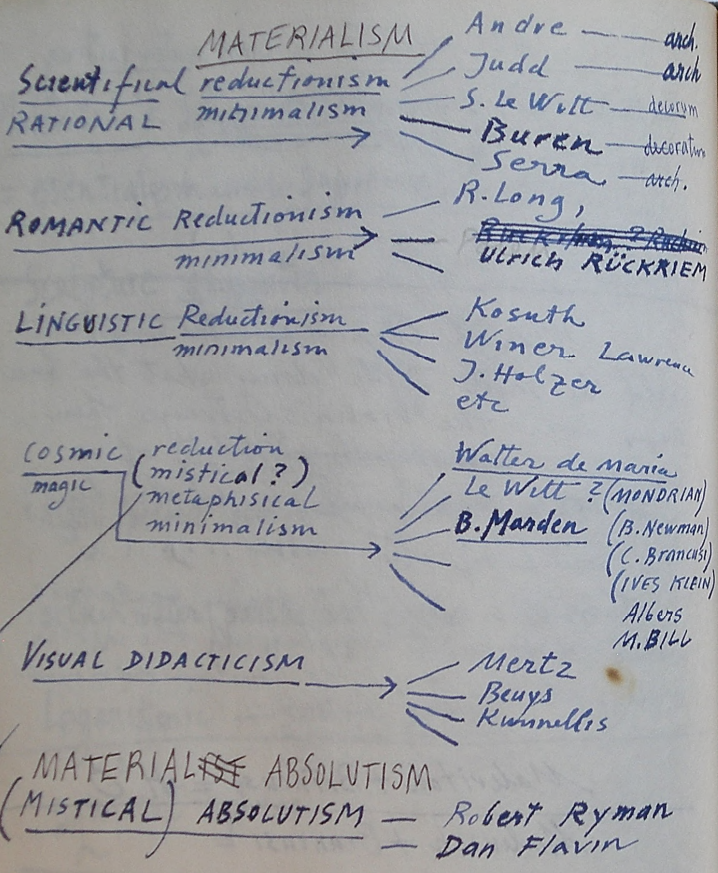 MATERIALISM
Scientifical reductionism
minimalism
RATIONAL
Andre — arch.
Judd — arch
S. Le Witt — decorum
Buren — decoratum
Serra — arch.
ROMANTIC Reductionism
minimalism
R. Long,
Ulrich RÜCKRIEM
LINGUISTIC Reductionism
minimalism
Kosuth
Winer Lawrence
J. Holzer
etc
cosmic reduction
magic (mistical?)
metaphisical
minimalism
Walter de maria
Le Witt ? (MONDRIAN)
B. Marden (B. Newman)
(C. Brancusi)
(IVES KLEIN)
Albers
M. BILL
VISUAL DIDACTICISM
Mertz
Beuys
Kunnellis
MATERIAL ABSOLUTISM
(MISTICAL) ABSOLUTISM — Robert Ryman
— Dan Flavin